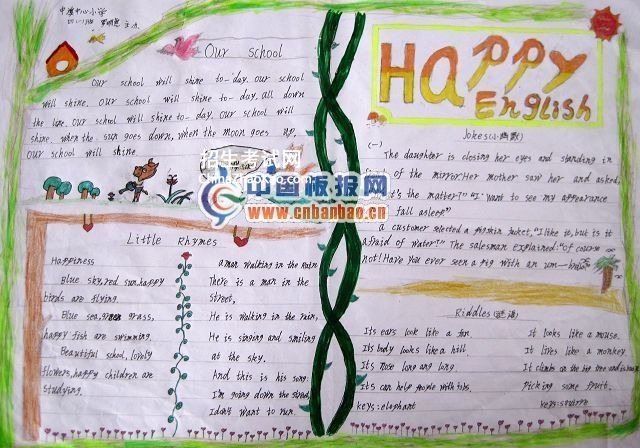 Our school
Our school will shine to-day. Our school
will shine. Our school will shine to-day, all down
the lane. Our school will shine to-day. Our school will
shine. when the sun goes down, when the moon goes up,
Our school will shine.
招生考试网
中国板报网
www.cnbanbao.cn
Little Rhymes
Happiness
Blue sky, red sun, happy
birds are flying.
Blue sea, green grass,
happy fish are swimming.
Beautiful school, lovely
flowers, happy children are
studying.
a man walking in the rain
There is a man in the
street,
He is walking in the rain,
He is singing and smiling
at the sky.
And this is his song:
I'm going down the street,
I don't want to run.
HAPPY
English
Jokes(幽默)
(一)
The daughter is closing her eyes and standing in
of the mirror. Her mother saw her and asked,
t's the matter?" "I want to see my appearance
fall asleep."
a customer selected a pigskin jacket, "I like it, but is it
afraid of water?" The salesman explained: "Of course
not! Have you ever seen a pig with an um-brella
Riddles(谜语)
Its ears look like a fan.
Its body looks like a hill.
Its nose long and long.
Its can help people with jobs.
keys: elephant
It looks like a mouse.
It lives like a monkey.
It climbs on the big tree and is
Picking some fruit.
keys: squirre